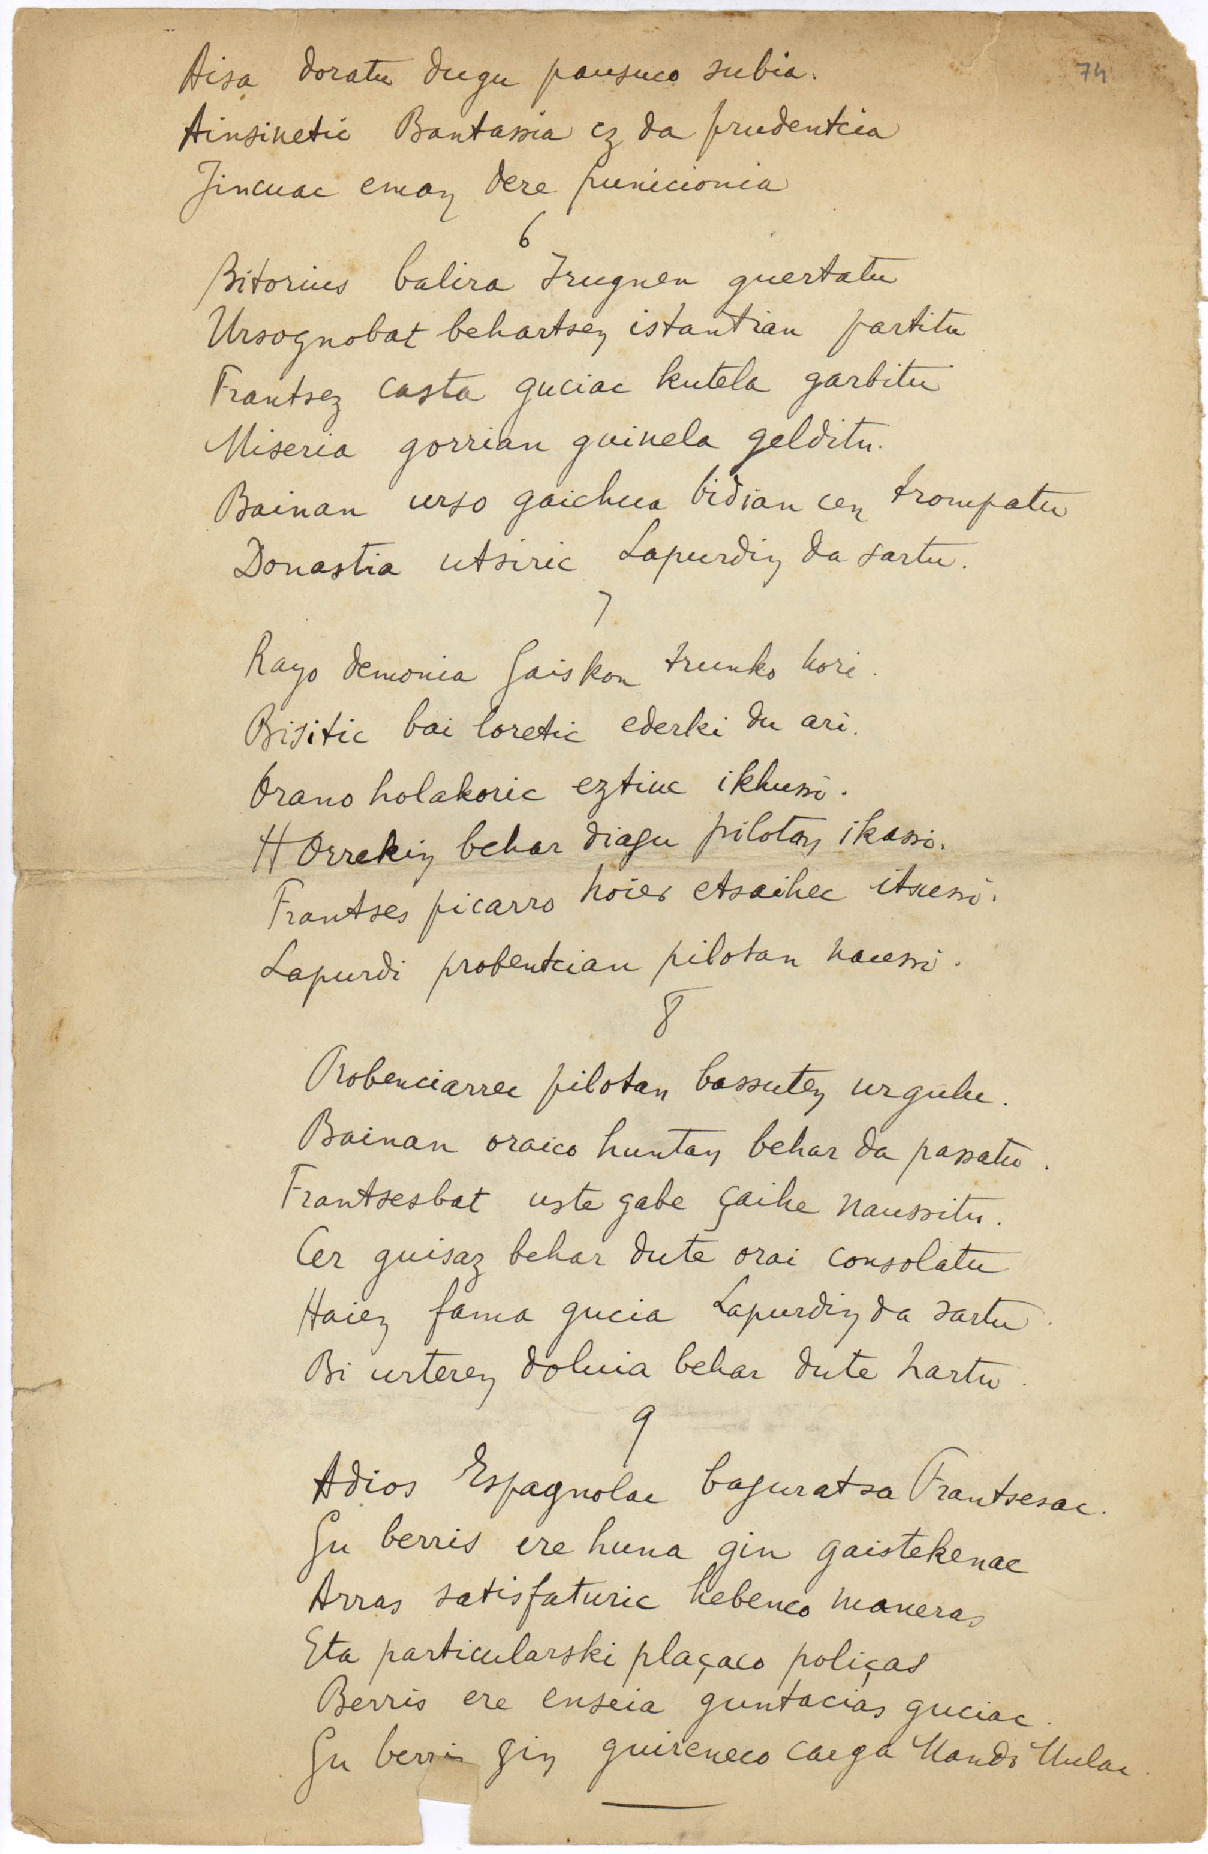 74
Aisa doratu dugu pausuco subia.
Ainsinetic Bantassia ez da prudentcia
Jincuac eman dere punicionia
6
Bitorius balira Irugnen guertatu
Ursognobat behartsen istantian partitu
Frantsez casta guciac kutela garbitu
Miseria gorrian guinela gelditu.
Bainan urso gaichua bidian cen trompatu
Donastia utsiric Lapurdin da sartu.
7
Rayo demonia Gaiskon trunko hori.
Bisitic bai loretic ederki du ari.
Orano holakoric eztiuc ikhussi.
HOrrekin behar diagu pilotan ikassi.
Frantses picarro hoier etsaihec itsussi.
Lapurdi probentcian pilotan naussi.
8
Probenciarrec pilotan bassuten urgulu.
Bainan oraico huntan behar da passatu.
Frantsesbat uste gabe çaihe naussitu.
Cer guisaz behar dute orai consolatu
Haien fama gucia Lapurdin da sartu.
Bi urteren doluia behar dute hartu.
9
Adios Espagnolac baguratsa Frantsesac.
Gu berris ere huna gin gaistekenac
Arras satisfaturic hebenco maneras
Eta particularski plaçaco poliças
Berris ere enseia guntacias guciac.
Gu berris gin guireneco caega Handi Hulac.